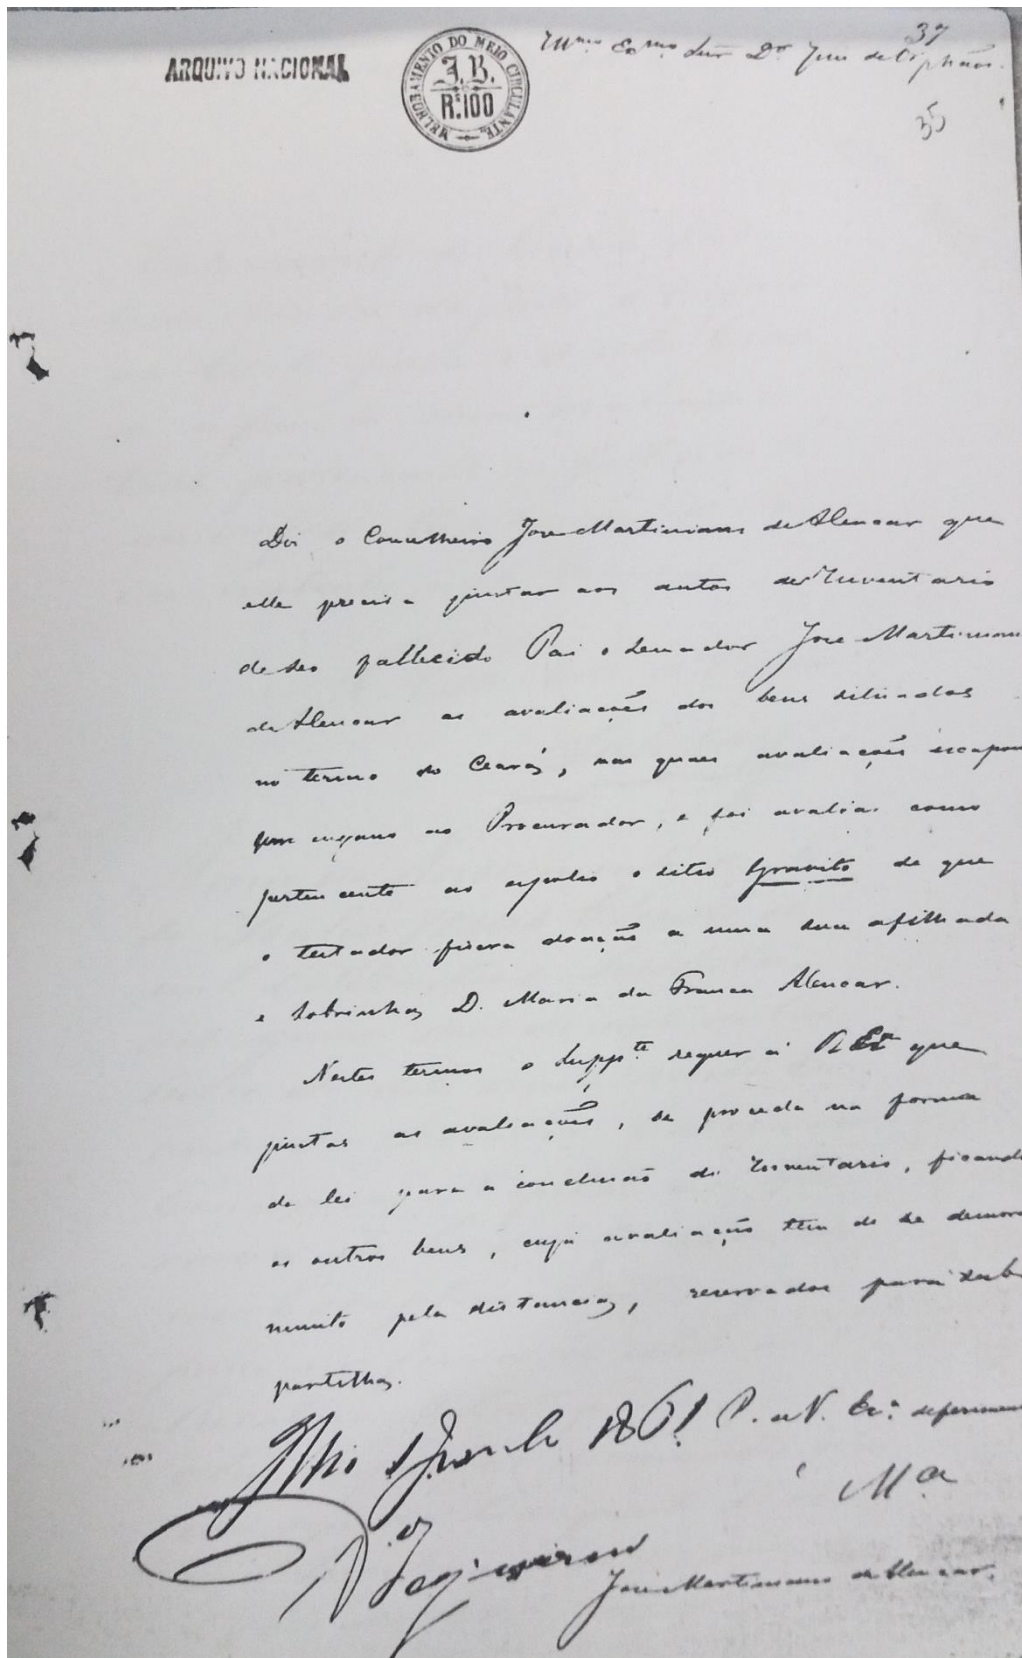 37
ARQUIVO NACIONAL
MELHORAMENTO DO MEIO CIRCULANTE
J.B.
Rs.100
Illmo Exmo Snr Dr Juis de Orphãos.
35
Diz o Conselheiro Jose Martiniano de Alencar que
elle precisa juntar aos autos de Inventario
de seo fallecido Pai o Senador Jose Martiniano
de Alencar as avaliações dos bens situados
no termo do Ceará, nas quaes avaliações escapou
um engano ao Procurador, e foi avaliado como
pertencente ao espolio o sitio Gravito de que
o testador fisera doação a uma sua afilhada
e sobrinha D. Maria da Franca Alencar.
Nestes termos o Suppte requer a V Ex que
juntas as avaliações, se proceda na forma
da lei para a conclusão do Inventario, ficando
os outros bens, cuja avaliação tem de se demorar
muito pela distancia, reservados para sub
partilha.
P. a V. Exa. deferimen
Rio
Mce
Jose Martiniano de Alencar.